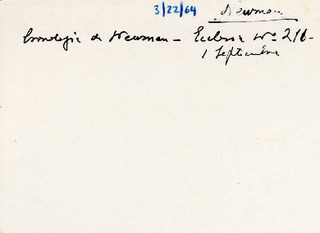 3/22/64 Newman
Cronología de Newman – Ecclesia Nº 216 –
1 Septiembre